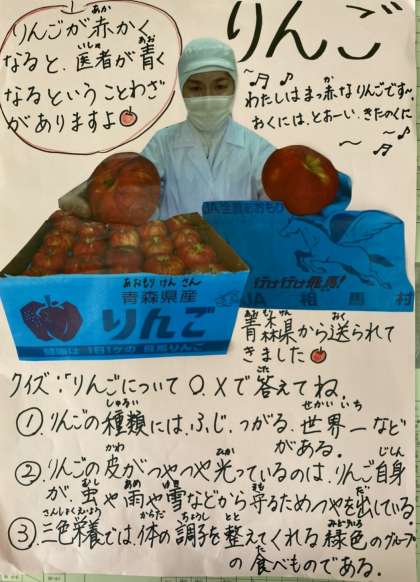 りんご
りんごが赤かく
なると、医者が青く
なるということわざ
がありますよ
わたしはまっ赤なりんごです〜
おくには、とおーい、きたのくに
JA
青森県産
りんご
行け行け飛馬!
JA 相馬村
青森県から送られて
きました
クイズ:「りんごについて○、×で答えてね。
①、りんごの種類には、ふじ、つがる、世界一など
がある。
②、りんごの皮がつやつや光っているのは、りんご自身
が、虫や雨や雪などから守るためつやを出している。
③、三色栄養では、体の調子を整えてくれる緑色のグループ
の食べものである。